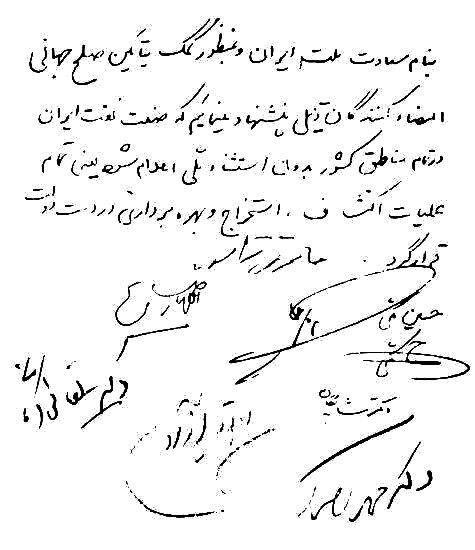 بنام سعادت ملت ایران و بمنظور کمک بتأمین صلح جهانی
امضاء کنندگان ذیل پیشنهاد مینمائیم که صنعت نفت ایران
در تمام مناطق کشور بدون استثناء ملی اعلام شود یعنی تمام
عملیات اکتشاف، استخراج و بهره برداری در دست دولت
قرار گیرد.
حائری زاده
اللهیار صالح
حسین مکی
دکتر شایگان
دکتر بقائی
آزاد
دکتر محمد مصدق